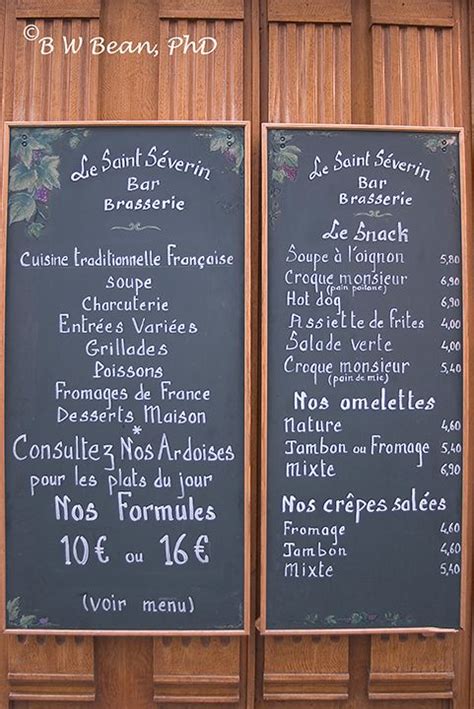 ©B W Bean, PhD
Le Saint Séverin
Bar
Brasserie
Cuisine traditionnelle Française
soupe
Charcuterie
Entrées Variées
Grillades
Poissons
Fromages de France
Desserts Maison
*
Consultez Nos Ardoises
pour les plats du jour
Nos Formules
10€ ou 16€
(voir menu)
Le Saint Séverin
Bar
Brasserie
Le Snack
Soupe à l'oignon 5,80
Croque monsieur 6,90
(pain poilane)
Hot dog 6,90
Assiette de frites 4,00
Salade verte 4,00
Croque monsieur 5,40
(pain de mie)
Nos omelettes
Nature 4,60
Jambon ou Fromage 5,40
Mixte 6,90
Nos crêpes salées
Fromage 4,60
Jambon 4,60
Mixte 5,40